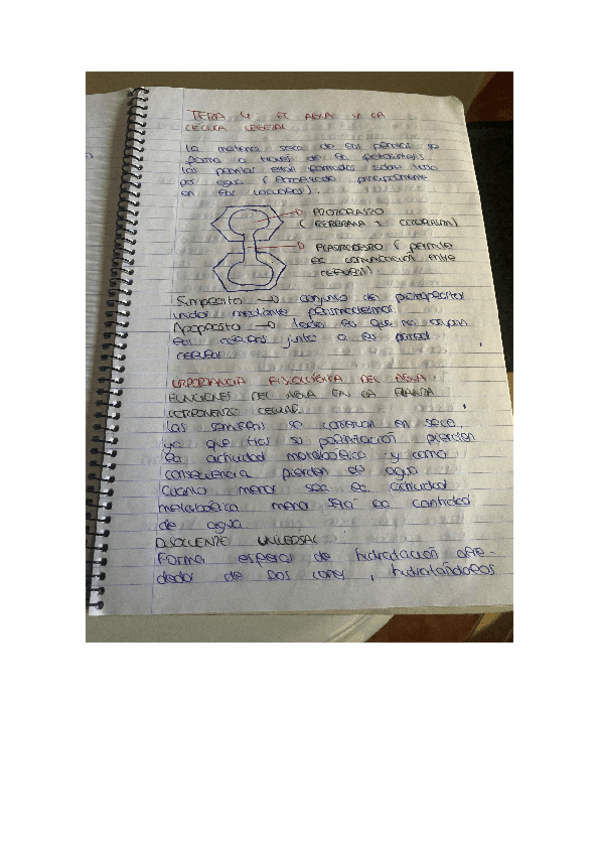 TEMA 4. EL AGUA Y LA
CÉLULA VEGETAL
La materia seca de las plantas se
forma a través de la fotosíntesis
las plantas están formadas sobre todo
por agua (almacenada principalmente
en las vacuolas).
PROTOPLASTO
(MEMBRANA + CITOPLASMA)
PLASMODESMO (permite
la comunicación entre
células)
Simplasto → conjunto de protoplastos
unidos mediante plasmodesmos
Apoplasto → todo lo que no ocupan
las células junto a la pared
celular
IMPORTANCIA FISIOLÓGICA DEL AGUA
FUNCIONES DEL AGUA EN LA PLANTA
COMPONENTE CELULAR
Las semillas se conservan en seco,
ya que tras su pierden
la actividad metabólica y como
consecuencia pierden de agua
Cuanto menor sea la actividad
metabólica menor será la cantidad
de agua
DISOLVENTE UNIVERSAL
Forma esferas de hidratación alre-
dedor de los iones, hidratándolos